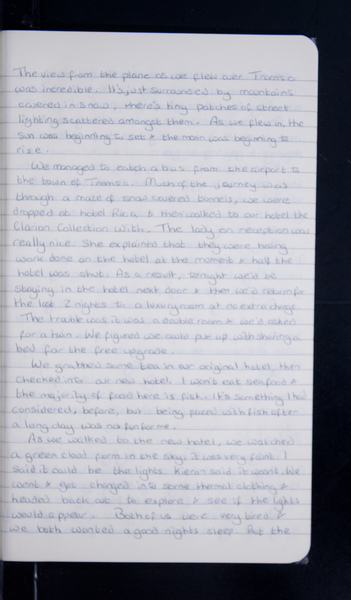 The view from the plane as we flew over Tromso
was incredible. It's just surrounded by mountains
covered in snow, there's tiny patches of street
lighting scattered amongst them. As we flew in, the
sun was beginning to set & the moon was beginning to
rise.
We managed to catch a bus from the airport to
the town of Tromso. Much of the journey was
through a maze of snow covered tunnels, we were
dropped at hotel Rica & then walked to our hotel the
Clarion Collection With. The lady on reception was
really nice. She explained that they were having
work done on the hotel at the moment & half the
hotel was shut. As a result, tonight we'd be
staying in the hotel next door & then we'd return for
the last 2 nights to a luxury room at no extra charge.
The trouble was it was a double room & we'd asked
for a twin. We figured we could put up with sharing a
bed for the free upgrade.
We grabbed some tea in our original hotel, then
checked into our new hotel. I won't eat seafood &
the majority of food here is fish. It's something I had
considered, before, but being faced with fish after
a long day was not fun for me.
As we walked to the new hotel, we watched
a green cloud form in the sky, it was very faint. I
said it could be the lights. Kieran said it wasn't. We
went & got changed into some thermal clothing &
headed back out to explore & see if the lights
would appear. Both of us were very tired &
we both wanted a good nights sleep. But the